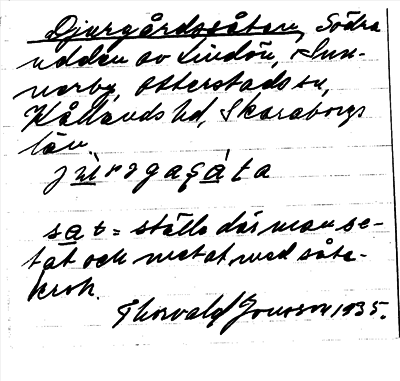 Djurgårdssåten, Södra
udden av Lindön,
nerby, Otterstads sn,
Kållands hd, Skaraborgs
län.
sat = ställe där man se-
tat och metat med såte-
krok.
Thorvald Jonsson 1935.